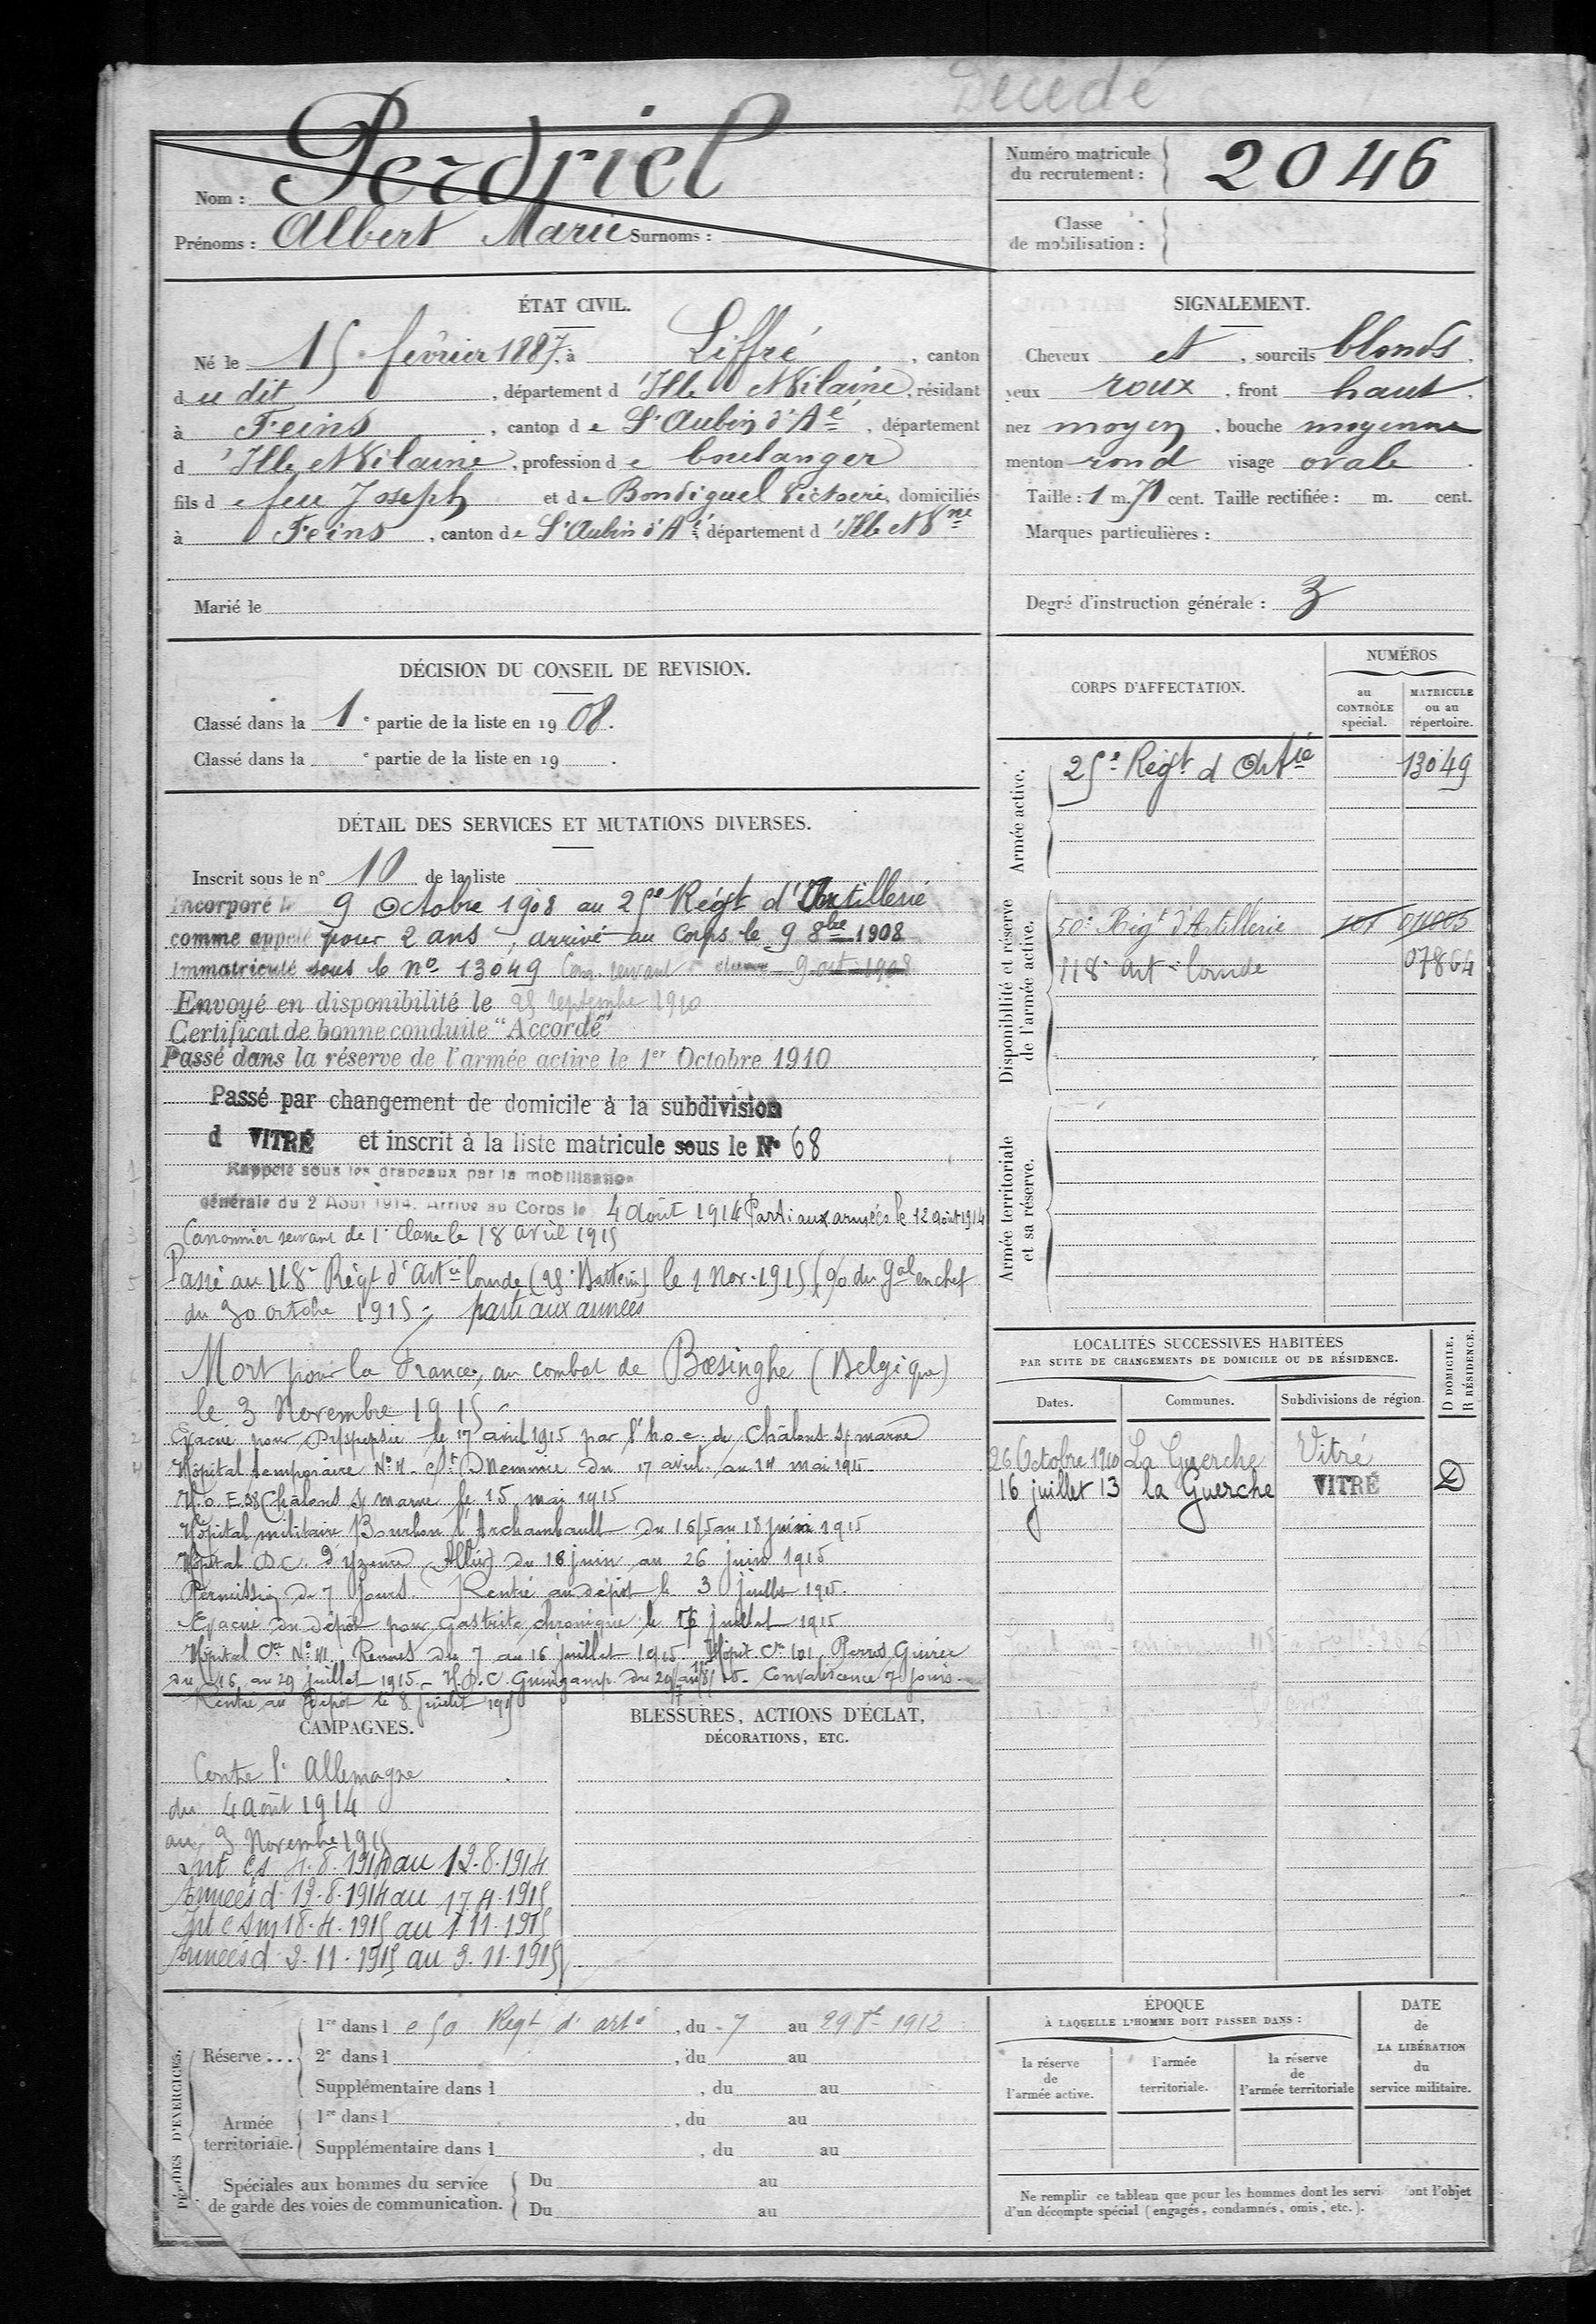 Decedé
Nom : Perdriel
Prénoms : Albert Marie Surnoms :
Numéro matricule du recrutement : 2046
Classe de mobilisation :
ÉTAT CIVIL.
Né le 15 février 1887, à Liffré, canton
du dit, département d'Ille et Vilaine, résidant
à Feins, canton de St Aubin d'Aé, département
d'Ille et Vilaine, profession de boulanger
fils de feu Joseph et de Bondiguel Victoire, domiciliés
à Feins, canton de St Aubin d'Aé, département d'Ille et Vne
Marié le
SIGNALEMENT.
Cheveux et, sourcils blonds,
yeux roux, front haut,
nez moyen, bouche moyenne
menton rond visage ovale.
Taille : 1 m. 71 cent. Taille rectifiée : m. cent.
Marques particulières :
Degré d'instruction générale : 3
DÉCISION DU CONSEIL DE REVISION.
Classé dans la 1e partie de la liste en 1908.
Classé dans la e partie de la liste en 19 .
DÉTAIL DES SERVICES ET MUTATIONS DIVERSES.
Inscrit sous le n° 10 de la liste
Incorporé le 9 Octobre 1908 au 25e Régt d'Artillerie
comme appelé pour 2 ans, arrivé au Corps le 9 8bre 1908
Immatriculé sous le No 13049 Can. servant 2e classe 9 oct 1908
Envoyé en disponibilité le 25 septembre 1910
Certificat de bonne conduite "Accordé"
Passé dans la réserve de l'armée active le 1er Octobre 1910
Passé par changement de domicile à la subdivision
d VITRÉ et inscrit à la liste matricule sous le No 68
Rappelé sous les drapeaux par la mobilisation
générale du 2 Août 1914. Arrivé au Corps le 4 Août 1914 Parti aux armées le 12 août 1914
Canonnier servant de 1e Classe le 18 avril 1915
Passé au 118e Régt d'Artie lourde (25e Batterie) le 1 Nov. 1915 (% du Gal en chef
du 30 octobre 1915 ; parti aux armées
Mort pour la France, au combat de Bœsinghe (Belgique)
le 3 Novembre 1915
Evacué pour Dyspepsie le 17 avril 1915 par l'h.o.e. de Châlons s/ marne
Hôpital temporaire No 4. Ste Mennie du 17 avril au 14 mai 1915
H.O.E. 38 Châlons s/ marne le 15 mai 1915
Hôpital militaire Bourbon l'Archambault du 16/5 au 18 juin 1915
Hôpital D.C. d'Yzeure (Allier) du 18 juin au 26 juin 1915
Permission de 7 jours. Rentré au dépôt le 3 juillet 1915.
Evacué du dépôt pour gastrite chronique le 7 juillet 1915
Hôpital Cre No 41 Rennes du 7 au 16 juillet 1915 Hôpit. Cre 101 Perros Guirec
du 16 au 29 juillet 1915. H.D.C. Guingamp du 29/7 au 1/8/15. Convalescence 7 jours.
Rentré au Dépôt le 8 juillet 1915
CORPS D'AFFECTATION.
NUMÉROS
au CONTRÔLE spécial.
MATRICULE ou au répertoire.
Armée active.
25e Régt d'Artie 13049
Disponibilité et réserve de l'armée active.
50e Régt d'Artillerie 107 011005
118e Artie lourde 07864
Armée territoriale et sa réserve.
LOCALITÉS SUCCESSIVES HABITÉES
PAR SUITE DE CHANGEMENTS DE DOMICILE OU DE RÉSIDENCE.
D DOMICILE. R RÉSIDENCE.
Dates. Communes. Subdivisions de région.
26 Octobre 1910 La Guerche Vitré
16 juillet 13 la Guerche VITRÉ D
CAMPAGNES.
Contre l'Allemagne
du 4 août 1914
au 3 Novembre 1915
Int CS 4.8.1914 au 12.8.1914
Armées d 13.8.1914 au 17.4.1915
Int C Sm 18.4.1915 au 1.11.1915
Armées d 2.11.1915 au 3.11.1915
BLESSURES, ACTIONS D'ÉCLAT,
DÉCORATIONS, ETC.
PÉRIODES D'EXERCICES.
Réserve... 1re dans le 50 Regt d'artie, du 7 au 29 7bre 1912
2e dans l , du au
Supplémentaire dans l , du au
Armée territoriale. 1re dans l , du au
Supplémentaire dans l , du au
Spéciales aux hommes du service de garde des voies de communication. Du au
Du au
ÉPOQUE
À LAQUELLE L'HOMME DOIT PASSER DANS :
la réserve de l'armée active.
l'armée territoriale.
la réserve de l'armée territoriale
DATE de LA LIBÉRATION du service militaire.
Ne remplir ce tableau que pour les hommes dont les servi ont l'objet
d'un décompte spécial (engagés, condamnés, omis, etc.).